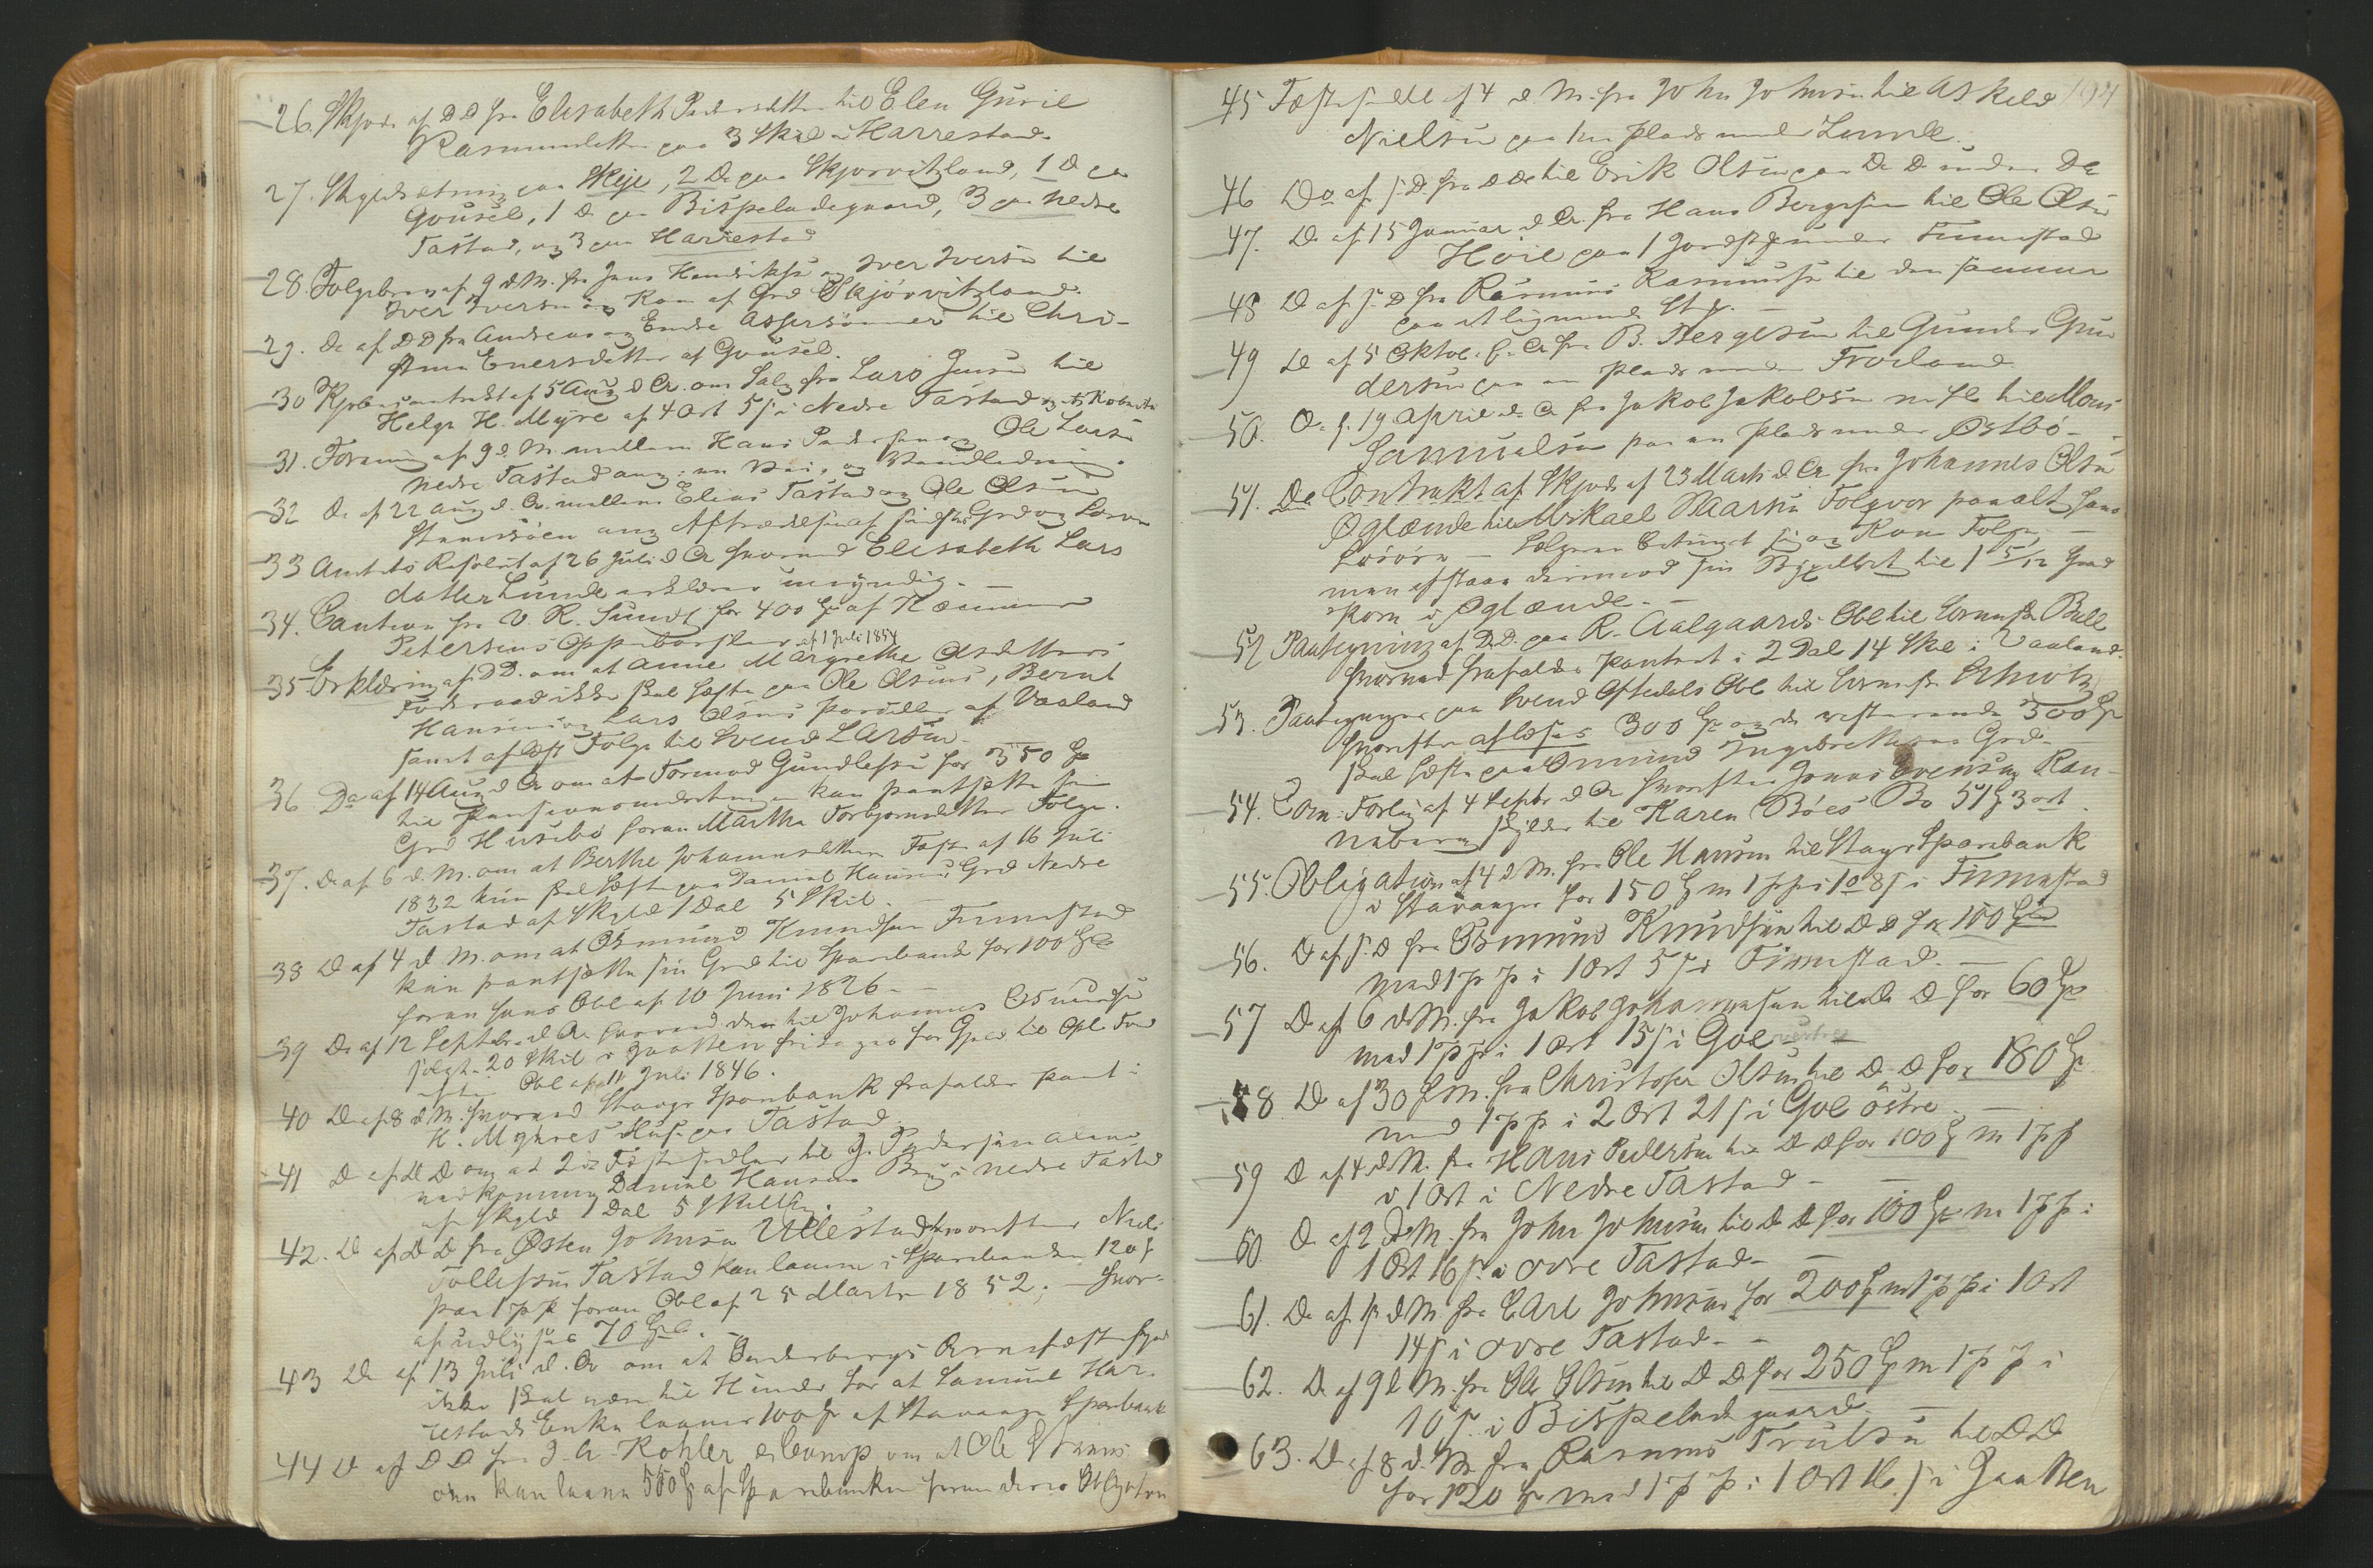 26. Skjøde af DD fra Elisabeth Pedersdatter til Elen Guril
Rasmusdatter paa 3 Skil i Harrestad.
27. Skyldsætning paa Skeje, 2 Do paa Skjørvitzland, 1 D paa
Gousel, 1 D paa Bispeladegaard, 3 paa nedre
Tastad, og 3 paa Harrestad
28. Folgebrev af 9 d M. fra Jens Hendriksen og Iver Iversen til
Iver Iversen og Kone af Grd Skjørvitzland.
29. Do af DD fra Andreas og Endre Assersønner til Chri-
Enersdatter af Gousel.
30 Kjøbecontrakt af 5 Aug d Ar. om Salg fra Lars Jensen til
Helge H. Myre af 4 Ort 5 s i Nedre Tastad
31. Forening af 9 d. M. mellem Hans Pedersen og Ole Larsen
nedre Tastad ang: en Vei, og Vandledning.
32 Do af 22 Aug d. Ar. mellem Elias Tastad og Ole Olsen
ang Aftrædelse af
33 Amtets Resolut af 26 Juli d Ar hvorved Elisabeth Lars
datter Lunde erklæres umyndig. —
34. Caution fra V. R. Sundt for 400 Spd af Kæmner
Petersens Oppebørsler af 1 Juli 1854
35. Erklæring af DD. om at Anne Margrethe Olsdatters
Føderaad ikke skal hefte paa Ole Olsens, Bernt
Hansens og Lars Olsens Parceller af Vaaland
samt aflæst Folge til Svend Larsen.
36. Do af 14 Aug d Ar om at Tormod Gundersen for 350 Spd
til Pensionsindretningen kan pantsætte sin
Grd Husebø foran Martha Torbjørnsdatters Folge.
37. Do af 6 d. M. om at Berthe Johannesdatters Fæste af 16 Juli
1832 kun skal hefte paa Daniel Hansens Grd Nedre
Tastad af Skyld 1 Dal 5 Skil.
38 D af 4 d M. om at Osmund Knudsen Finnestad
kan pantsætte sin Grd til Sparebanken for 100 Spd
foran hans Obl af 10 Juni 1826 —
39 Do af 12 Septbr d Ar hvorved den til Johannes Osmundsen
solgte 20 Skil i Gausken fritages for Hæft til Opl. Fond
efter Obl af 11 Juli 1846.
40 D af 8 d M. hvorved Stavgr Sparebank frafalder Pant i
H. Myhres Huse paa Tastad.
41 D af D D om at 2de Fæstesedler til J. Pedersen alene
vedkommer Daniel Hansens Brug i nedre Tastad
af Skyld 1 Dal 5 Skilling.
42. D af D D fra Østen Johnsen Ullestad hvorefter Niels
Tollefsen Tastad kan laane i Sparebanken 120 s
paa 1 p p foran Obl af 25 Marts 1852; — hvor-
af udlyses 70 Spd. —
43 D af 13 Juli d. Ar om at Enderbergs Arvefæstehjem
ikke skal være til Hinder for at Samuel Har-
restads Enke laaner 100 Spd af Stavanger Sparebank
44 D af D D fra J. A. Kohler & Comp om at Ole
kan laane 550 Spd af Sparebanken foran deres Obligation
194
45 Fæsteseddel af 4 d. M. fra John Johnsen til Askeld
Nielsen paa en Plads under Lunde.
46 Do af s. D. fra D D til Erik Olsen paa D D under Do
47. D af 15 Januar d Ar. fra Hans Bergesen til Ole Olsen
Høie paa 1 Jordstk under Finnestad
48 D af s. D fra Rasmus Rasmussen til den samme
paa et lignende Stk. —
49 D af 5 Oktob. f. A fra B. Bergesen til Gunder Gun
dersen paa en Plads under Frøiland
50. D. f. 19 April d. A fra Jakob Jakobsen m fl til Mons
Samuelsen paa en Plads under Østbø —
51. Do Contrakt af Skjøde af 23 Marts d Ar fra Johannes Olsen
Øglænde til Mikael Maarsen Folgvor paa alt hans
Løsøre — Sælgeren betinget sig og Kone Folge,
men afstaar derimod sin Bygselret til 1 5/12 Spd
Korn i Øglænde. —
52 Paategning af D. D. paa R. Aalgaards Obl til Bull
hvorved frafaldes Pantret i 2 Dal 14 Skil i Vaaland.
53. Paategninger paa Svend Oftedals Obl til Schiøtz
hvorefter aflæses 300 Spd og de resterende 500 Spd
skal hæfte paa Omund Ingebretsens Grd.
54. Com: Forlig af 4 Septbr d Ar hvorefter Jonas Evensen Ran-
naberg skylder til Karen Bøes Bo 51 s 3 ort
55. Obligation af 4 d M. fra Ole Hansen til Stavgr Sparebank
i Stavanger for 150 Spd m 1 p p i 1 o 8 s i Finnestad
56. D af s. D fra Osmund Knudsen til D D for 100 Spd
med 1 p p i 1 Ort 5 s i Finnestad. —
57 D af 6 d M. fra Jakob Johannesen til D D for 60 Spd
med 1 p p i 1 Ort 15 s i Goe
58 D af 30 f M. fra Christofer Olsen til D D for 180 Spd
med 1 p p i 2 Ort 21 s i Goe østre. —
59 D af 4 d M. fra Hans Pedersen til D D for 100 Spd m 1 p p
i 1 Ort i Nedre Tastad —
60. D af 2 d M. fra John Johnsen til D D for 100 Spd m 1 p p i
1 Ort 16 s. i øvre Tastad —
61. D af s. d M. fra Carl Johnsen for 200 Spd m 1 p p i 1 Ort
14 s i øvre Tastad —
62. D af 9 d M. fra Ole Olsen til D D for 250 Spd m 1 p p i
10 s. i Bispeladegaard. —
63. D af 8 d. M. fra Rasmus Trulsen til D D
for 120 Spd med 1 p p i 1 Ort 16 s i Gausken